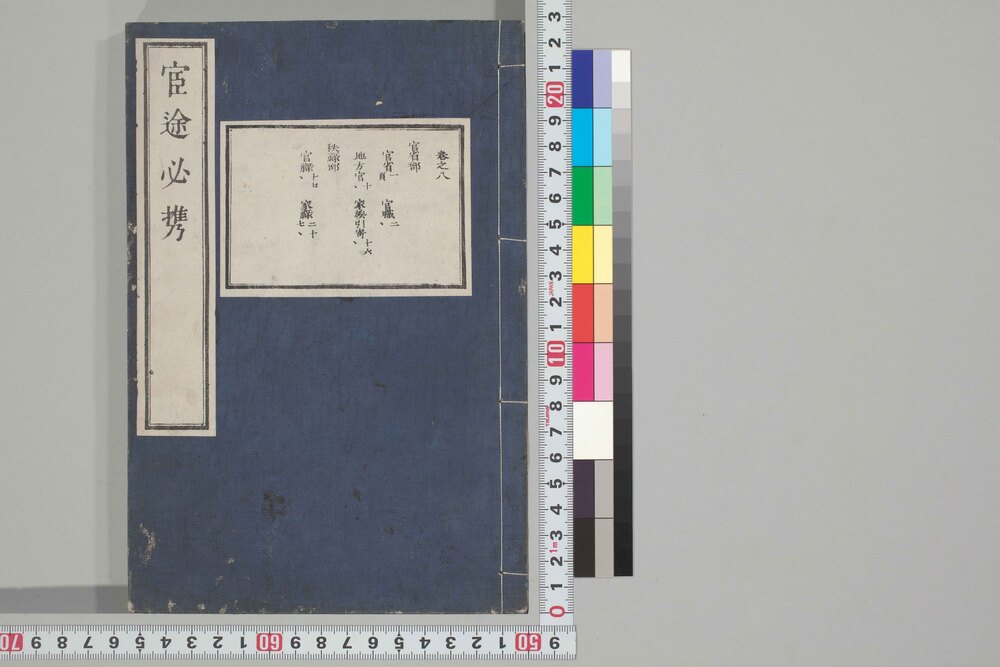 宦途必携
卷之八
官省部
官省一頁 官職二、
地方官、十 家族引寄、十六
秩祿部
官祿、十七 家祿二十七、
3
2
1
20
9
8
7
6
5
4
3
JAPAN
2
1
10
9
8
7
6
5
4
3
1m
2
1
0
70 9 8 7 6 5 4 3 2 1 60 9 8 7 6 5 4 3 2 1 50 9